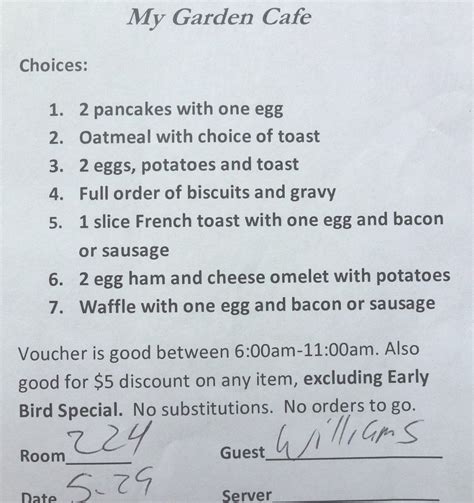 My Garden Cafe
Choices:
1. 2 pancakes with one egg
2. Oatmeal with choice of toast
3. 2 eggs, potatoes and toast
4. Full order of biscuits and gravy
5. 1 slice French toast with one egg and bacon
or sausage
6. 2 egg ham and cheese omelet with potatoes
7. Waffle with one egg and bacon or sausage
Voucher is good between 6:00am-11:00am. Also
good for $5 discount on any item, excluding Early
Bird Special. No substitutions. No orders to go.
Room 224 Guest Williams
Date 5-29 Server